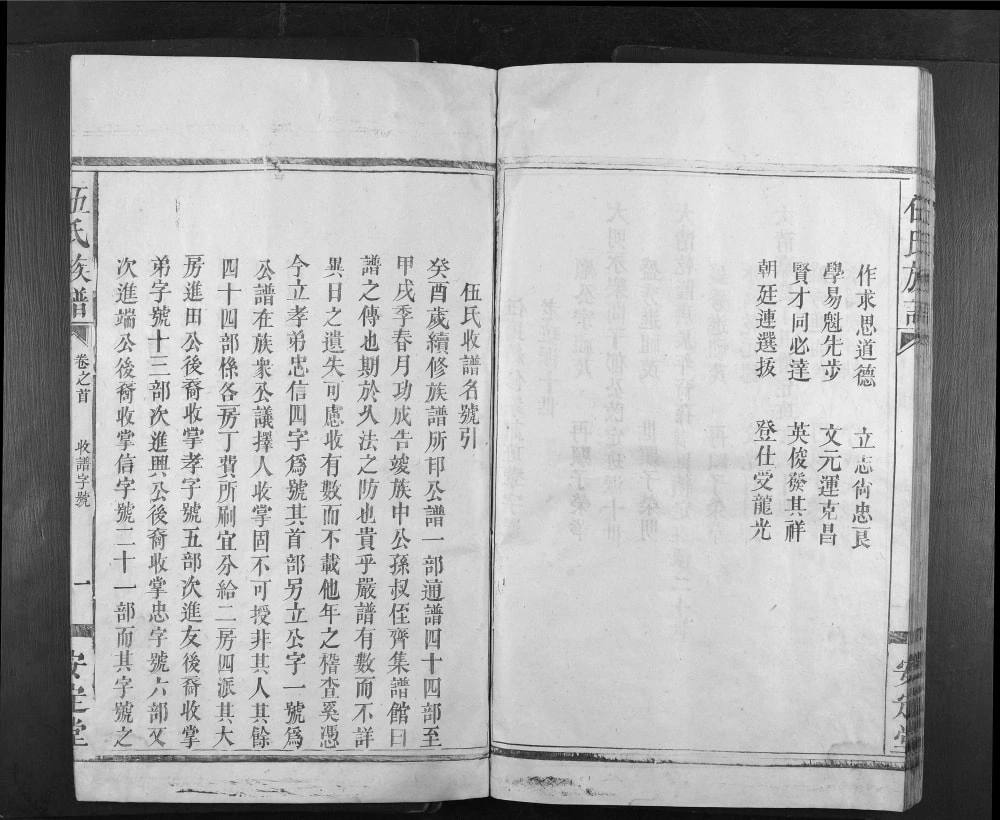 伍氏族譜
作求思道德 立志尙忠良
學易魁先步 文元運克昌
賢才同必達 英俊發其祥
朝廷連選拔 登仕受龍光
安定堂
伍氏收譜名號引
癸酉歲續修族譜所印公譜一部通譜四十四部至
甲戌季春月功成告竣族中公孫叔侄齊集譜館曰
譜之傳也期於久法之防也貴乎嚴譜有數而不詳
異日之遺失可慮收有數而不載他年之稽查奚憑
今立孝弟忠信四字爲號其首部另立公字一號爲
公譜在族衆公議擇人收掌固不可授非其人其餘
四十四部條各房丁費所刷宜分給二房四派其大
房進田公後裔收掌孝字號五部次進友後裔收掌
弟字號十三部次進興公後裔收掌忠字號六部又
次進端公後裔收掌信字號二十一部而其字號之
伍氏族譜
卷之首
收譜字號
一
安定堂